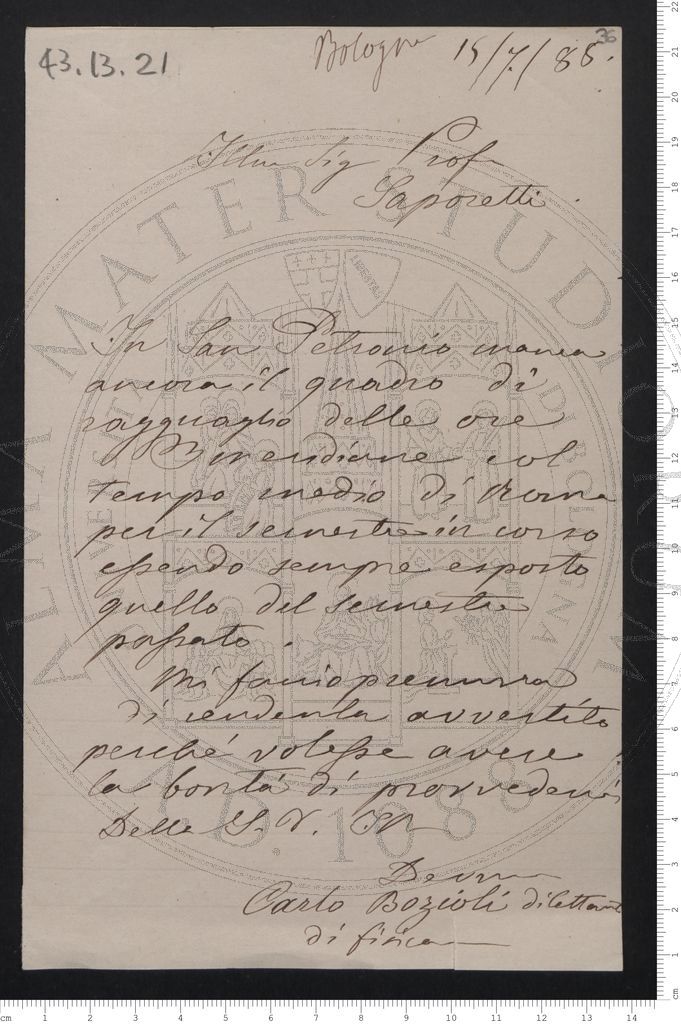 43.13.21
36
Bologna 15/7/88.
Illm Sig Prof
Saporetti.
In San Petronio manca
ancora il quadro di
ragguaglio delle ore
Meridiane col
tempo medio di Roma
per il semestre in corso
essendo sempre esposto
quello del semestre
passato.
Mi faccio premura
di renderla avvertito
perché volesse avere
la bontà di provvedervi
Della S. V. Ill
Devmo
Carlo Bozioli dilettante
di fisica
ALMA MATER STUDIORUM
A.D. 1088
LIBERTAS